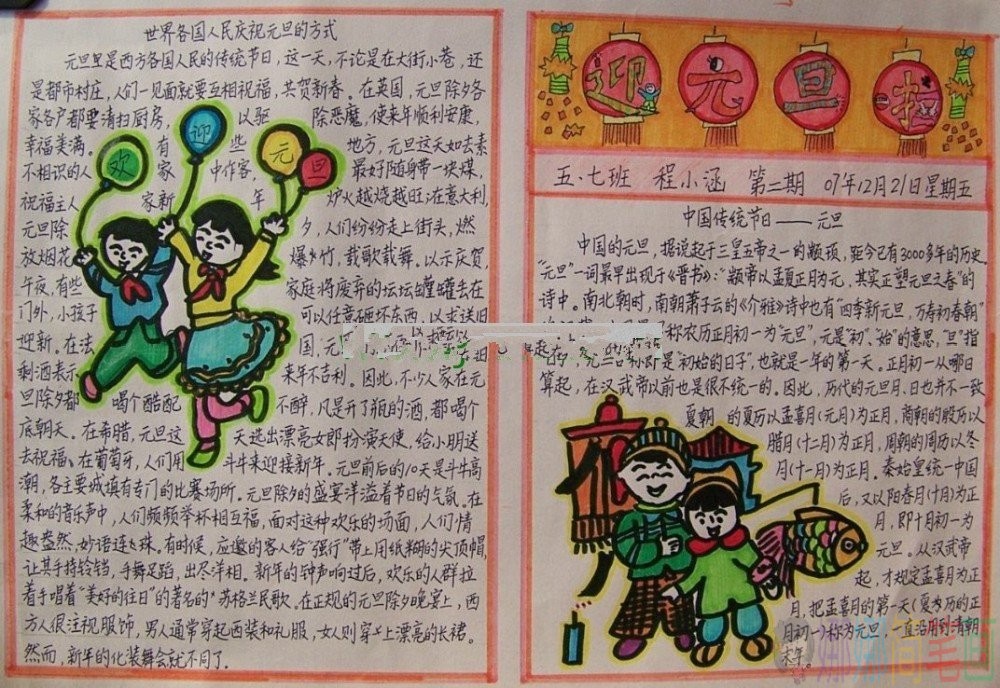 世界各国人民庆祝元旦的方式
元旦里是西方各国人民的传统节日，这一天，不论是在大街小巷，还
是都市村庄，人们一见面就要互相祝福，共贺新春。在英国，元旦除夕各
家各户都要清扫厨房，以驱除恶魔，使来年顺利安康，
幸福美满。有些地方，元旦这天如去素
不相识的人家中作客，最好随身带一块煤，
祝福主人家新年炉火越烧越旺。在意大利，
元旦除夕，人们纷纷走上街头，燃
放烟花爆竹，载歌载舞。以示庆贺，
午夜，有些家庭将废弃的坛坛罐罐丢在
门外，小孩子可以任意砸坏东西，以求送旧
迎新。在法国，元
剩酒表示来年不吉利。因此，不少人家在元
旦除夕都喝个酩酊不醉，凡是开了瓶的酒，都喝个
底朝天。在希腊，元旦这天选出漂亮女郎扮演天使，给小朋送
去祝福。在葡萄牙，人们用斗牛来迎接新年。元旦前后的10天是斗牛高
潮，各主要城填有专门的比赛场所。元旦除夕的盛宴洋溢着节日的气氛。在
柔和的音乐声中，人们频频举杯相互福，面对这种欢乐的场面，人们情
趣盎然，妙语连珠。有时候，应邀的客人给“强行”带上用纸糊的尖顶帽，
让其手持铃铛，手舞足蹈，出尽洋相。新年的钟声响过后，欢乐的人群拉
着手唱着“美好的往日”的著名的苏格兰民歌，在正规的元旦除夕晚宴上，西
方人很注视服饰，男人通常穿起西装和礼服，女人则穿上漂亮的长裙。
然而，新年的化装舞会就不同了。
欢迎元旦
迎元旦
五·七班 程小涵 第二期 07年12月21日星期五
中国传统节日——元旦
中国的元旦，据说起于三皇五帝之一的颛顼，距今已有3000多年的历史。
“元旦”一词最早出现于《晋书》：“颛帝以孟夏正月为元，其实正塑元旦之春”的
诗中。南北朝时，南朝萧子云的《介雅》诗中也有“四季新元旦，万寿初春朝”
称农历正月初一为“元旦”，元是“初”、“始”的意思，旦”指
是“初始的日子”，也就是一年的第一天。正月初一从哪日
算起，在汉武帝以前也是很不统一的。因此，历代的元旦月、日也并不一致
夏朝的夏历以孟喜月（元月）为正月，商朝的殷历以
腊月（十二月）为正月，周朝的周历以冬
月（十一月）为正月。秦始皇统一中国
后，又以阳春月（十月）为正
月，即十月初一为
元旦。从汉武帝
起，才规定孟喜月为正
月，把孟喜月的第一天（夏历的正
月初一）称为元旦，一直沿用到清朝
末年。
娜娜简笔画